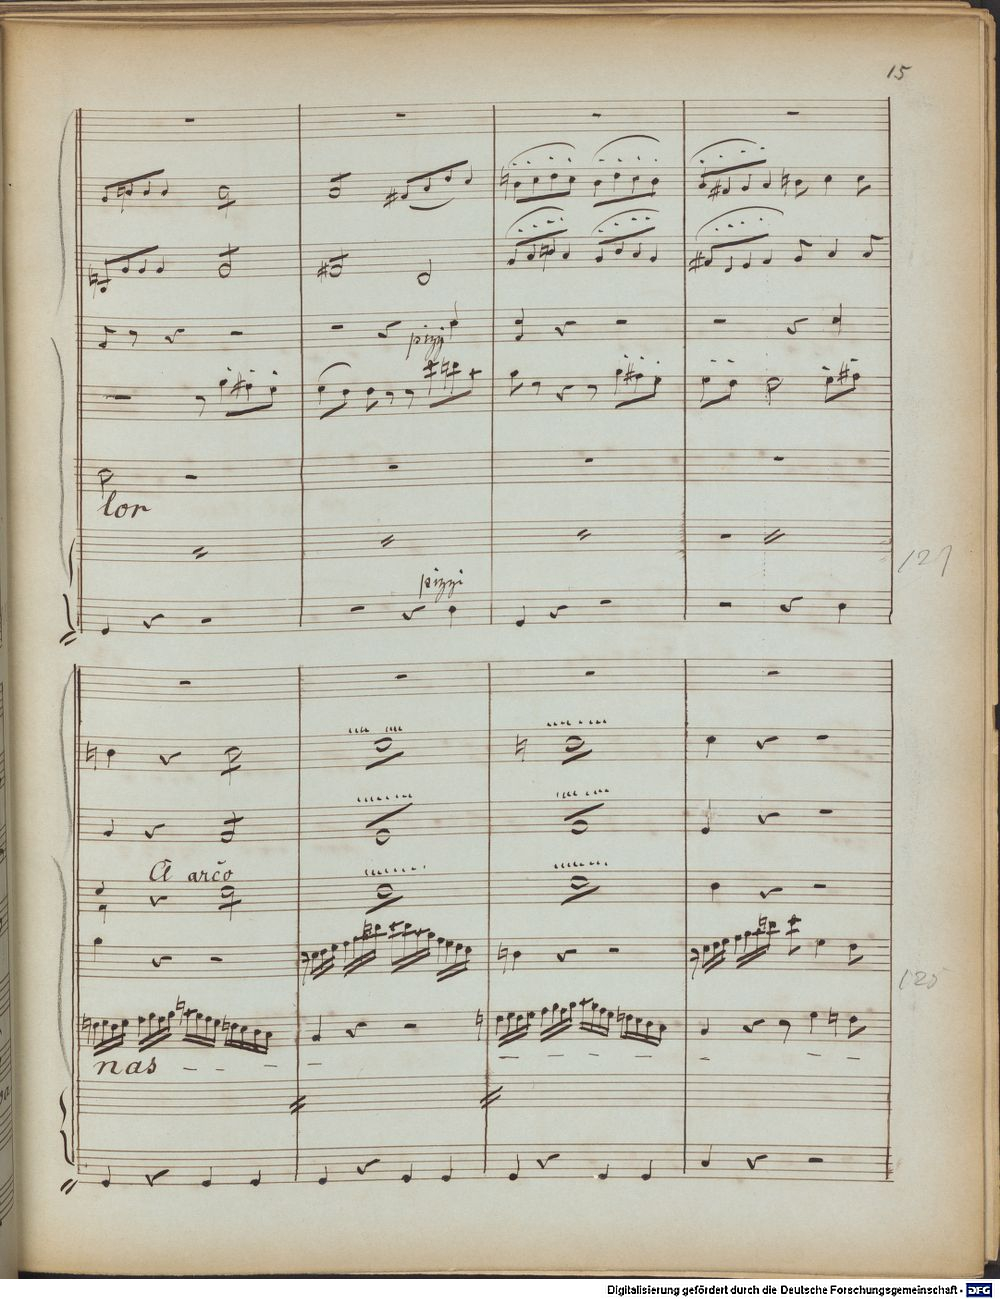 15
pizzi
lor
pizzi
121
A arco
125
nas
Digitalisierung gefördert durch die Deutsche Forschungsgemeinschaft - DFG